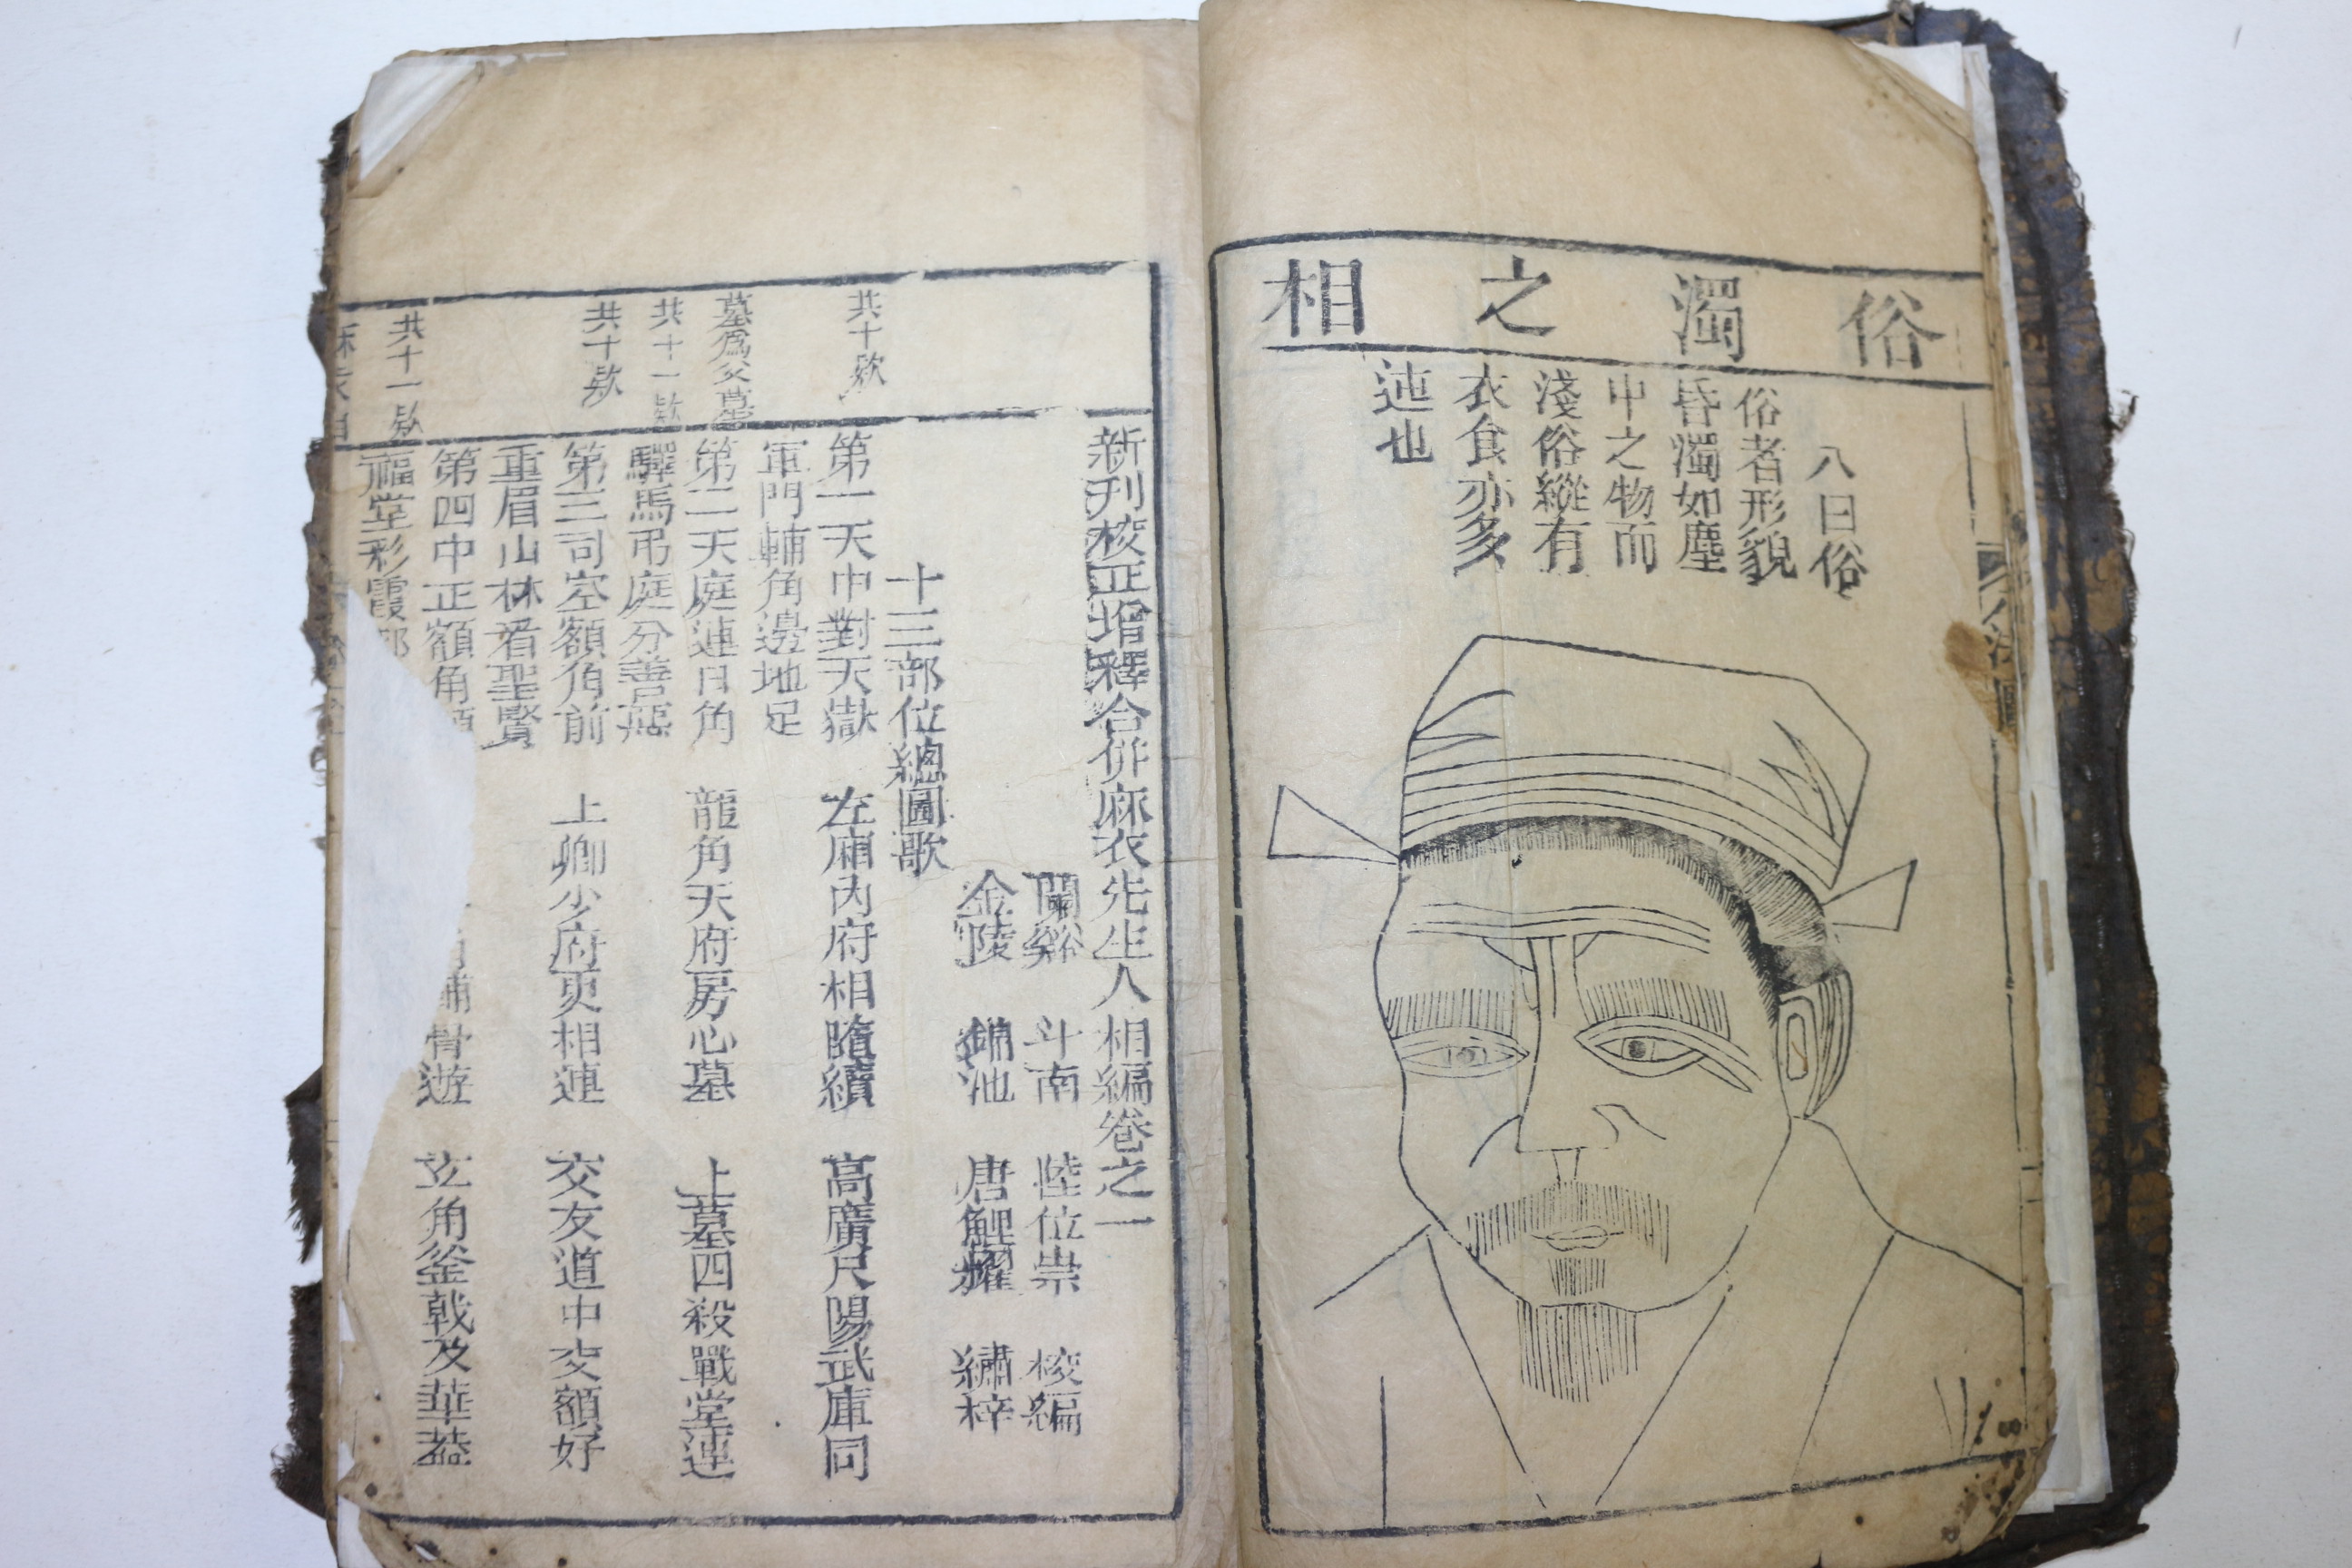 俗濁之相
八曰俗
俗者形貌
昏濁如塵
中之物而
淺俗縱有
衣食亦多
迍也
新刊校正增釋合併麻衣先生人相編卷之一
闌谿 斗南 陸位崇 校編
金陵 錦池 唐鯉耀 繡梓
十三部位總圖歌
共十欵
第一天中對天獄 左廂內府相隨續 高廣尺陽武庫同
軍門輔角邊地足
墓爲父墓
第二天庭連日角 龍角天府房心墓 上墓四殺戰堂連
共十一欵
驛馬弔庭分善惡
共十欵
第三司空額角前 上卿少府更相連 交友道中交額好
重眉山林看聖賢
第四中正額角 輔骨遊 玄角釜戟及華蓋
共十一欵
福堂彩霞郊